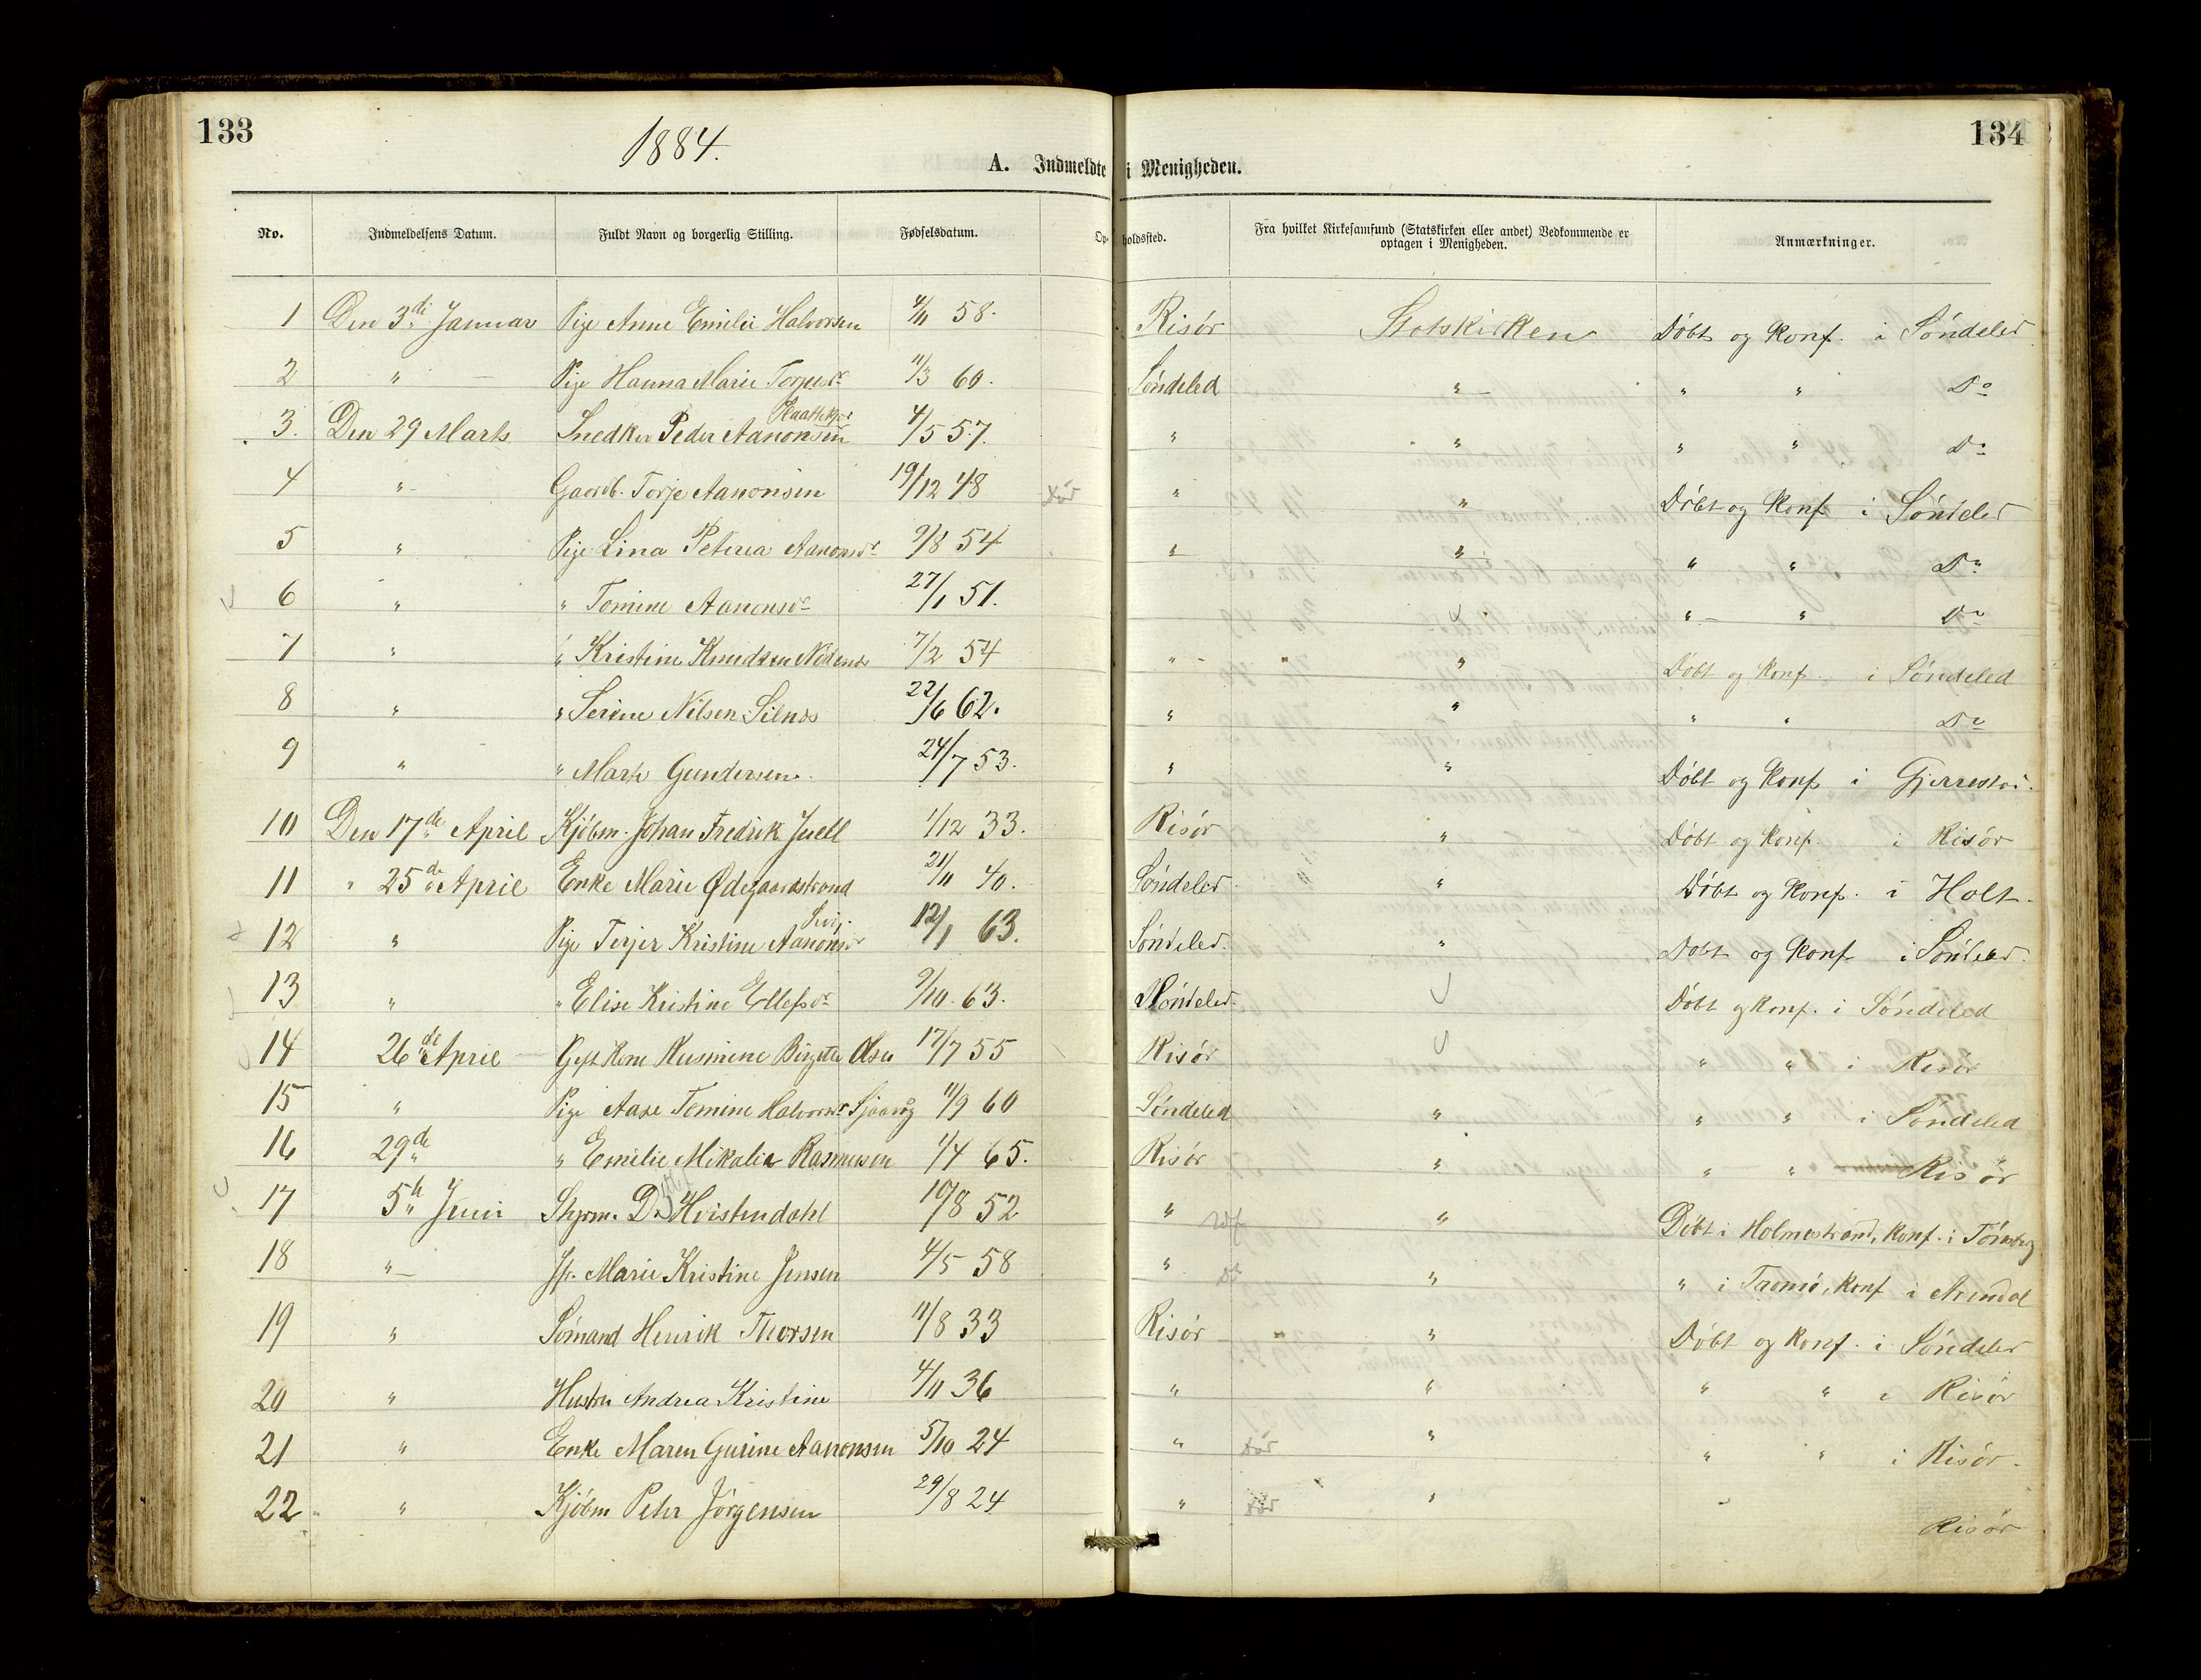 133
134
1884.
A. Indmeldte i Menigheden.
No. Indmeldelsens Datum. Fuldt Navn og borgerlig Stilling. Fødselsdatum. Opholdssted. Fra hvilket Kirkesamfund (Statskirken eller andet) Vedkommende er optagen i Menigheden. Anmærkninger.
1 Den 3di Januar Pige Anne Emilie Halvorsen 4/11 58. Risør Statskirken Döbt og Konf. i Söndeled
2 " Pige Hanna Marie 11/3 60. Söndeled " " " Do
3. Den 29 Marts Snedker Peder Aanonsen 4/5 57. " " " " Do
4 " Gaardb. Torje Aanonsen 19/12 48 död " " Döbt og Konf i Söndeled
5 " Pige Lina Petrea Aanonsdr 9/8 54 " " " " Do
6 " " Tomine Aanonsdr 27/1 51. " " Do
7 " " Kristine Knudsen 7/2 54 " " Döbt og Konf. i Söndeled
8 " " Serine Nilsen 22/6 62. " " " " Do
9 " " Marte Gundersen. 24/7 53. " " Döbt og Konf i Gjerrestad.
10 Den 17de April Kjöbm. Johan Fredrik Juell 1/12 33. Risör " Döbt og Konf. i Risör
11 " 25de April Enke Marie Ødegaardstrand 21/11 40. Söndeled " " Döbt og Konf. i Holt.
12 " Pige Terjer Kristine Aanonsdr 12/1 63. Söndeled. " Döbt og Konf i Söndeled.
13 " " Elise Kristine Ellefsdr 9/10. 63. Söndeled. Döbt og Konf. i Söndeled
14 26de April Gift Kone Rusmine Birgitte Olsen 17/7 55 Risör " " i Risör
15 " Pige Aase Tomine Halvorsdr 11/9 60 Söndeled " " " i Söndeled
16 29de " Emilie Mikalia Rasmusen 1/4 65. Risör " " " Risör
17 5te Juni Styrm. D. Hvistendahl 19/8 52 " " Döbt i Holmestrand, Konf. i Tönsberg
18 " Jfr. Marie Kristine Jensen 4/5 58 " " " i Tromö, Konf i Arendal
19 " Sömand Henrik Thorsen 11/8 33 Risör " Döbt og Konf. i Söndeled
20 " Hustru Andrea Kristine 4/11 36 " " " " i Risör
21 " Enke Maren Gurine Aanonsen 5/10 24 " död " " " i Risör.
22 " Kjöbm Peter Jörgensen 29/8 24 " död " Risör